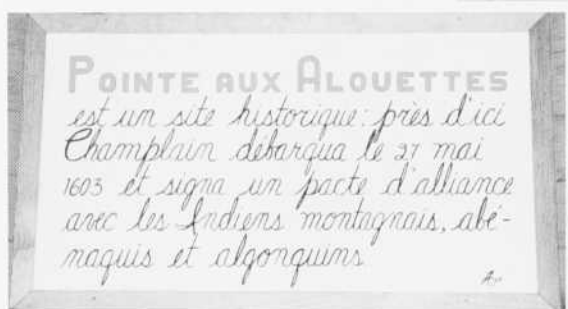 POINTE AUX ALOUETTES
est un site historique: près d'ici
Champlain débarqua le 27 mai
1603 et signa un pacte d'alliance
avec les Indiens montagnais, abé-
naquis et algonquins